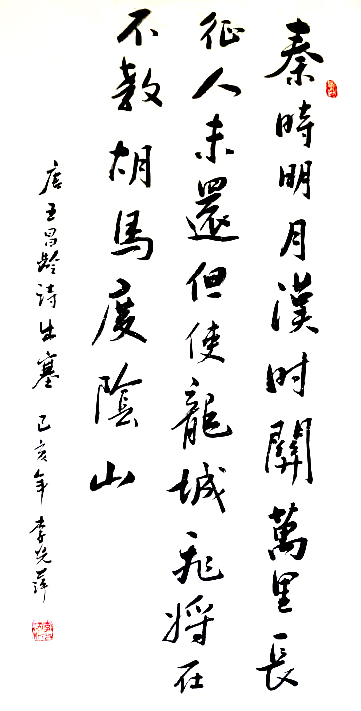 秦時明月漢时關萬里長
征人未還但使龍城飛將在
不教胡馬度陰山
唐王昌龄詩出塞 己亥年李光萍